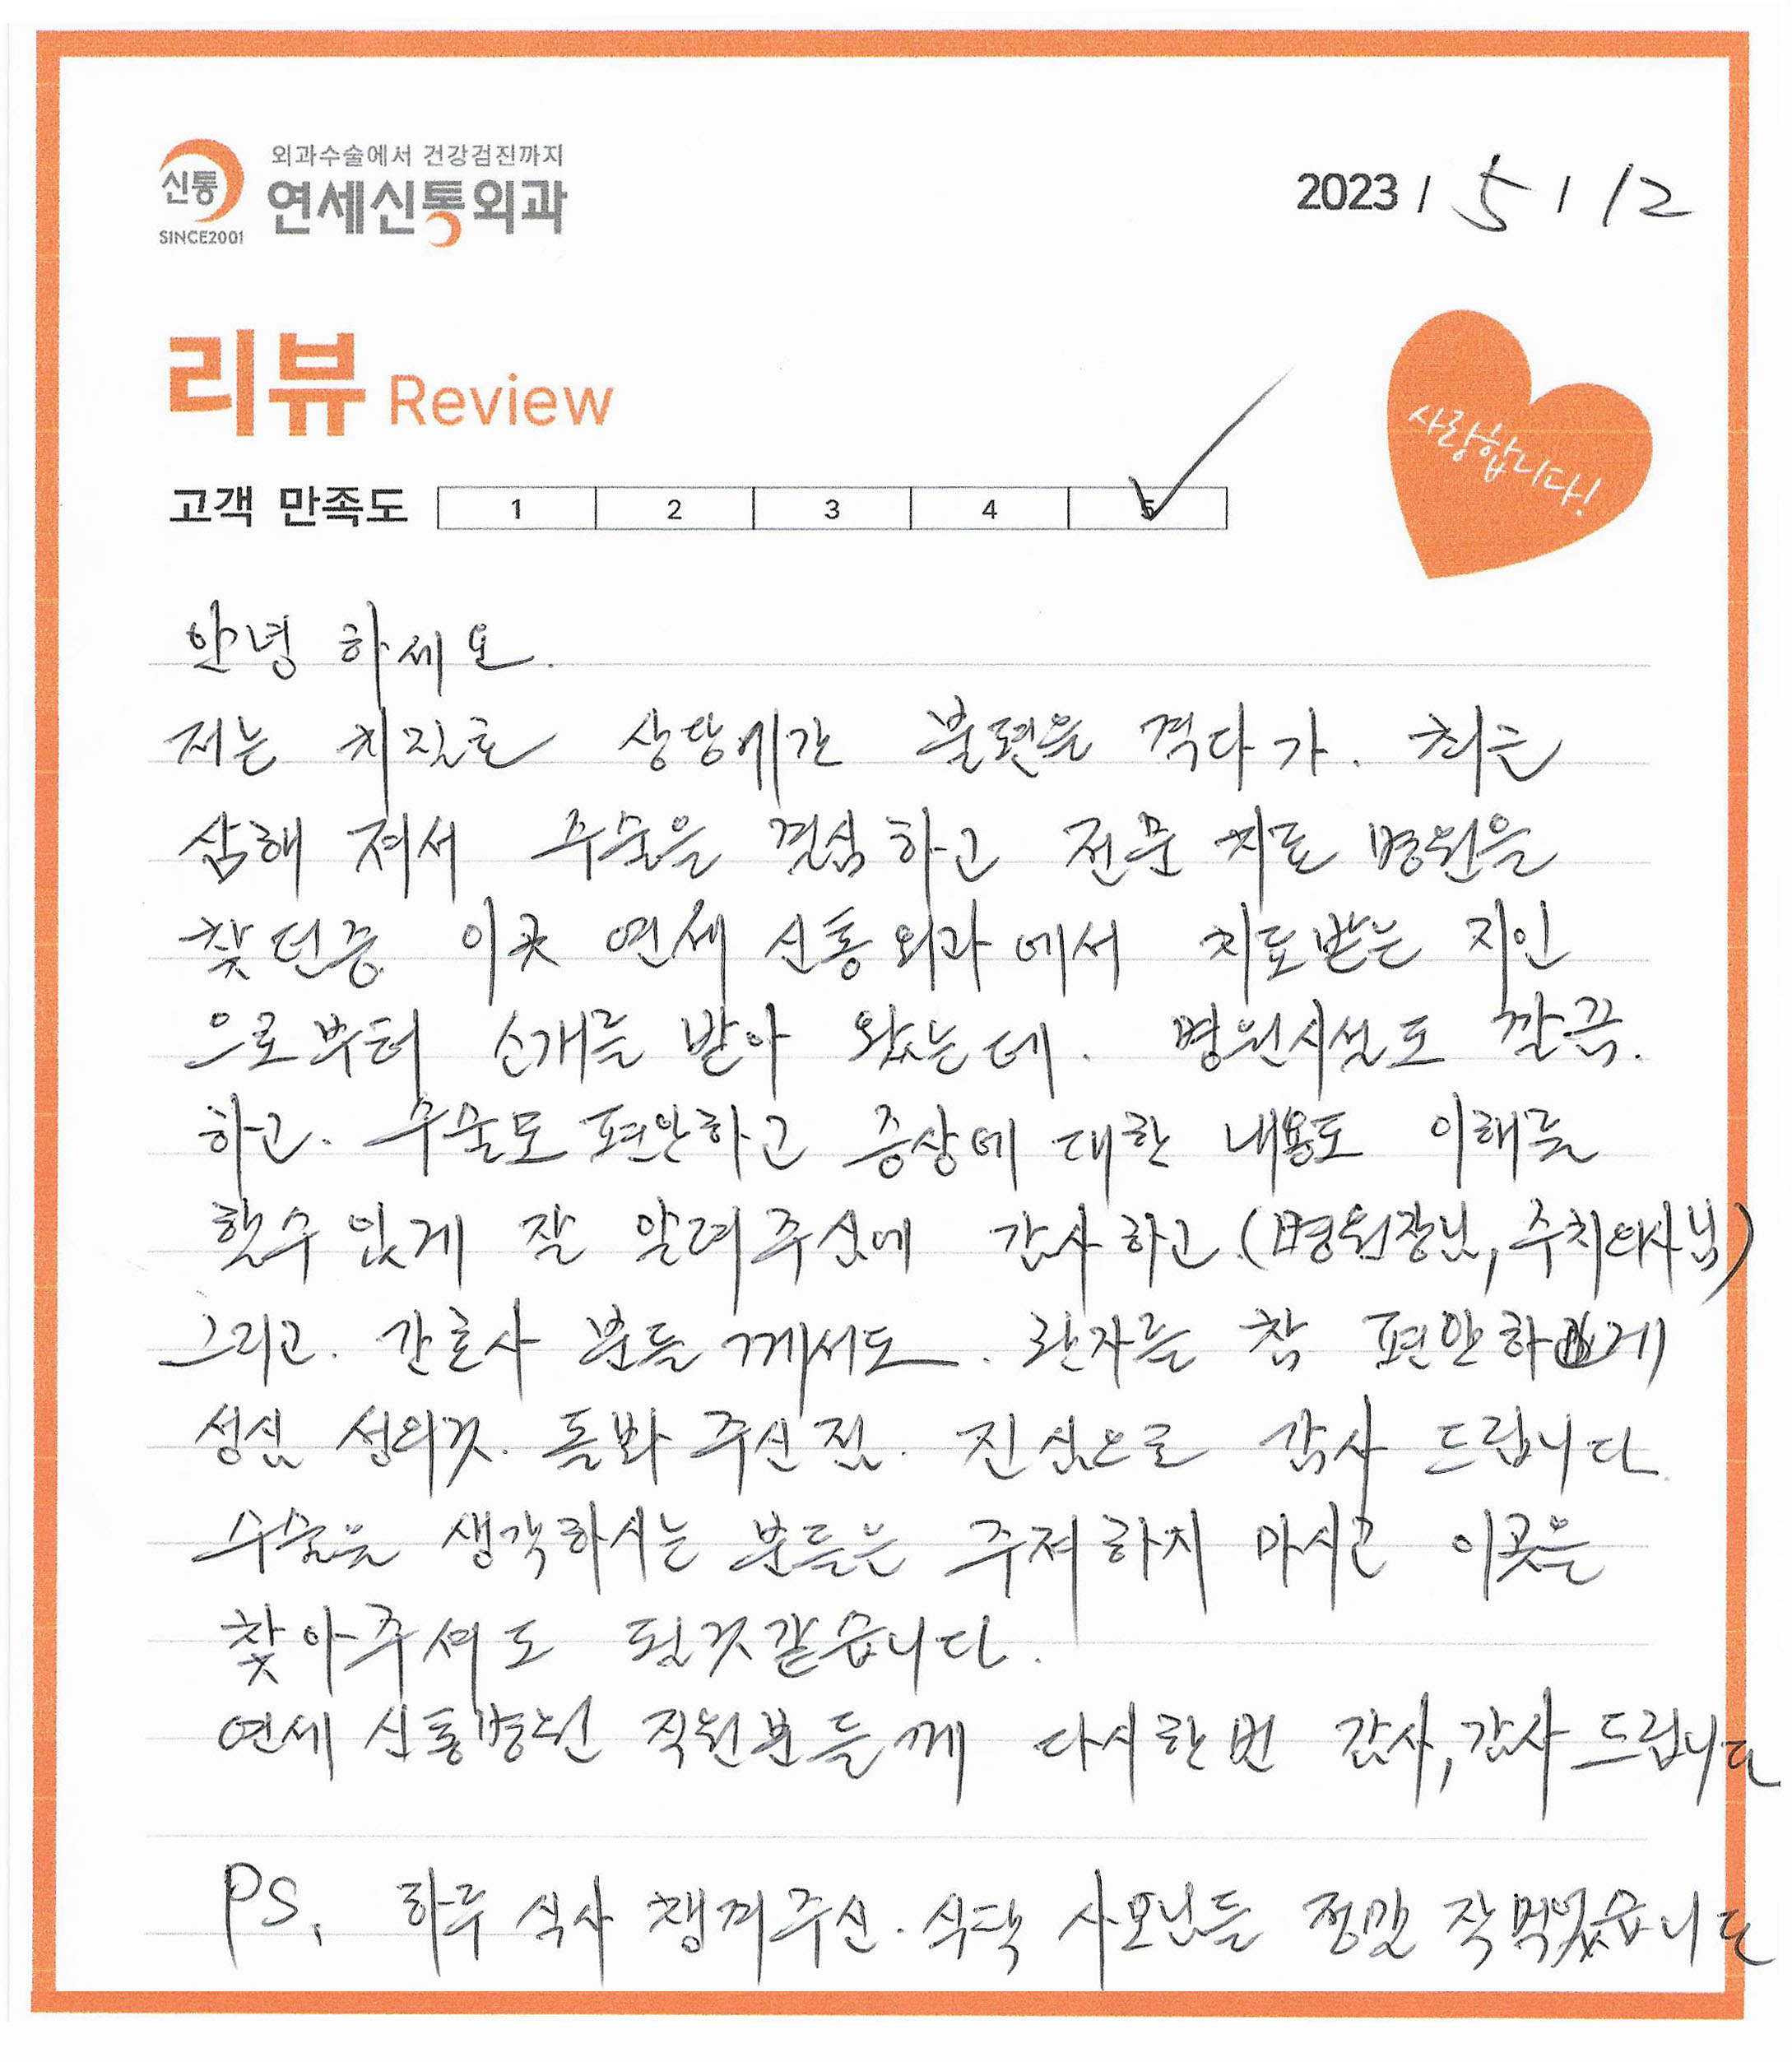 외과수술에서 건강검진까지
신통 연세신통외과
SINCE2001
2023 / 5 / 12
리뷰 Review
사랑합니다!
고객 만족도 1 2 3 4 5
안녕 하세요.
저는 치질로 상당기간 불편을 격다가. 최근
심해 져서 수술을 결심하고 전문 치료 병원을
찾던중 이곳 연세 신통외과에서 치료받는 지인
으로부터 소개를 받아 왔는데. 병원시설도 깔끔.
하고. 수술도 편안하고 증상에 대한 내용도 이해를
할수 있게 잘 알려주심에 감사하고.(병원장님, 수치의사님)
그리고. 간호사 분들 께서도. 환자를 참 편안하게
성심 성의것. 돌봐 주신점. 진심으로 감사 드립니다.
수술을 생각하시는 분들은 주저하지 마시고 이곳을
찾아주셔도 될것같습니다.
연세 신통병원 직원분들께 다시한번 감사, 감사 드립니다
PS, 하루 식사 챙겨주신. 식당 사모님들 정말 잘먹었습니다